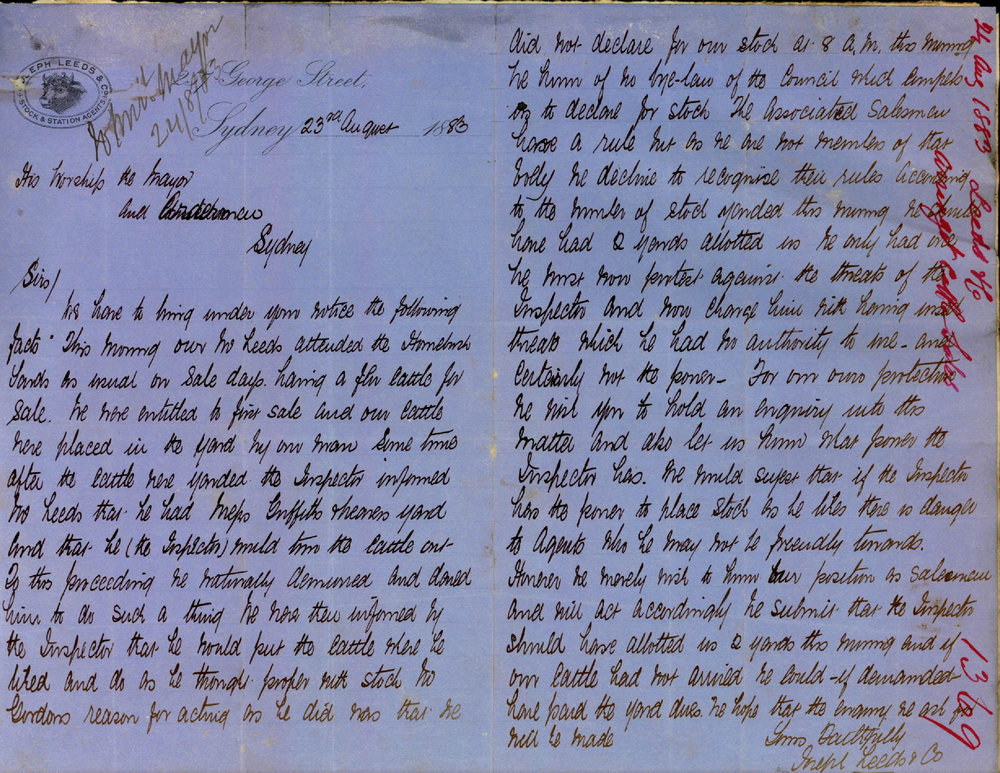 JOSEPH LEEDS & CO
STOCK & STATION AGENTS
George Street,
Mayor
24/8/83
Sydney 23rd August 1883
His Worship the Mayor
and Aldermen
Sydney
Sirs/
We have to bring under your notice the following
facts. This morning our Mr Leeds attended the Homebush
Yards as usual on Sale days. having a few Cattle for
Sale. We were entitled to first sale and our Cattle
were placed in the yard by our man Some time
after the Cattle were yarded the Inspector informed
Mr Leeds that we had Messrs Griffiths & Weavers yard
and that he (the Inspector) would turn the Cattle out
To this proceeding we naturally demurred and dared
him to do such a thing We were then informed by
the Inspector that he would put the Cattle where he
liked and do as he thought proper with stock Mr
Gordons reason for acting as he did was that we
did not declare for our stock at 8 A.M. this morning
We know of no bye-law of the Council which compels
us to declare for stock The Associated Salesmen
have a rule but as we are not members of that
body we decline to recognise their rules According
to the number of stock yarded this morning we should
have had 2 yards allotted us we only had one
We must now protest against the threats of the
Inspector and now charge him with having used
threats which he had no authority to use - and
Certainly not the power - For our own protection
We wish you to hold an enquiry into this
matter and also let us know what power the
Inspector has. We would sugest that if the Inspector
has the power to place stock as he likes there is danger
to Agents who he may not be friendly towards.
However we merely wish to know our position as salesmen
and will act accordingly We submit that the Inspector
should have allotted us 2 yards this morning and if
our Cattle had not arrived he could - if demanded
have paid the yard dues. We hope that the enquiry we ask for
will be made
Yours Faithfully
Joseph Leeds & Co
24 Aug 1883 Leeds & Co
Cattle Sales
1369